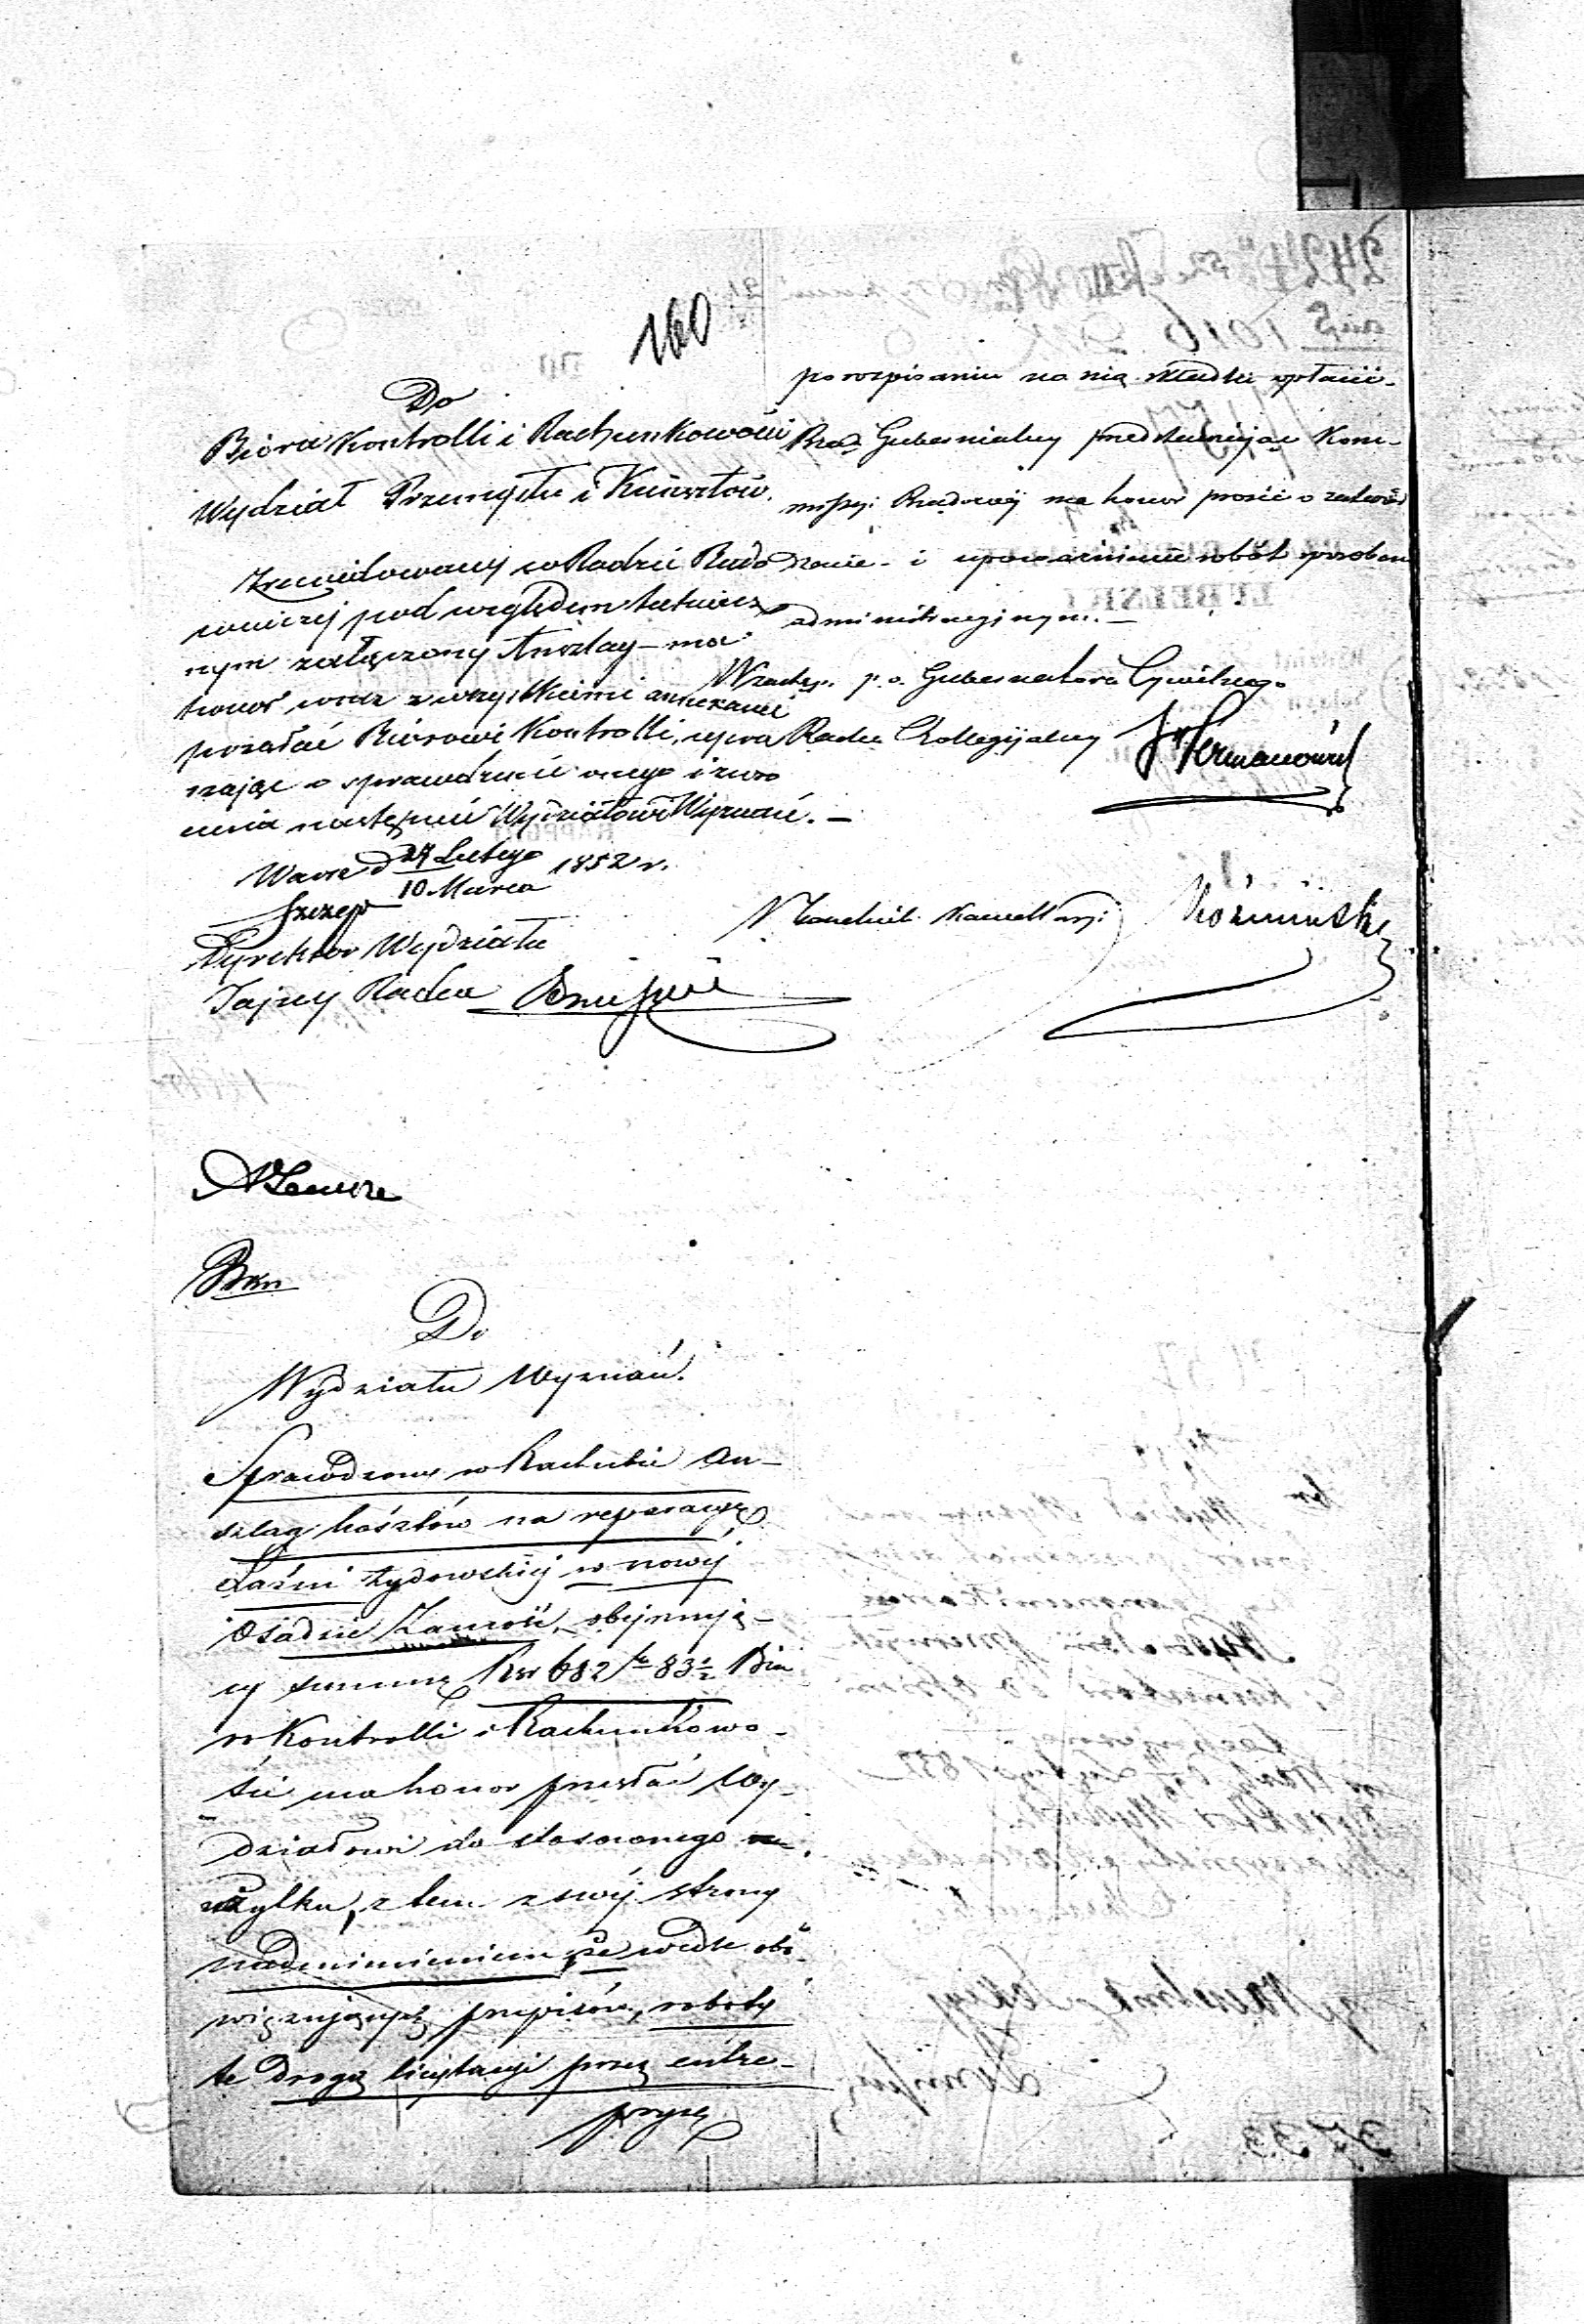 160
Do
Bióra Kontrolli i Rachunkowości
Wydział Przemysłu i Kunsztów.
Zrewidowany w Radzie Budo
wniczej pod względem technicz
nym załączony Anszlag – ma
honor wraz z wszystkiemi annexami
przesłać Biórowi Kontrolli, upra
szając o sprawdzenie onego i zwró
cenia następnie Wydziałowi Wyznań. –
Warsz d 27 Lutego / 10 Marca 1852 r.
Dyrektor Wydziału
Tajny Radca
po rozpisaniu na nią składki opłacić.
Rząd Gubernialny przedstawiając Kom-
missyi Rządowéj ma honor prosić o zatwier
dzenie i upoważnienie robót sposobem
administracyjnym. –
W zastęp. p. o. Gubernatora Cywilnego
Radca Kollegijalny
Naczelnik Kancellaryi
Do
Wydziału Wyznań.
Sprawdzony w Rachubie An-
szlag kosztów na reparacyę
Łaźni żydowskiéj w nowéj
Osadzie Zamość, obejmują-
cy summę Rsr 682 k 83½ Biu
ro Kontrolli i Rachunkowo-
ści ma honor przesłać Wy-
działowi do stosownego
użytku, z tem z swéj strony
nadmienieniem, że wedle obo
wiązujących przepisów, roboty
te drogą licytacyi przez entre-
pryzę